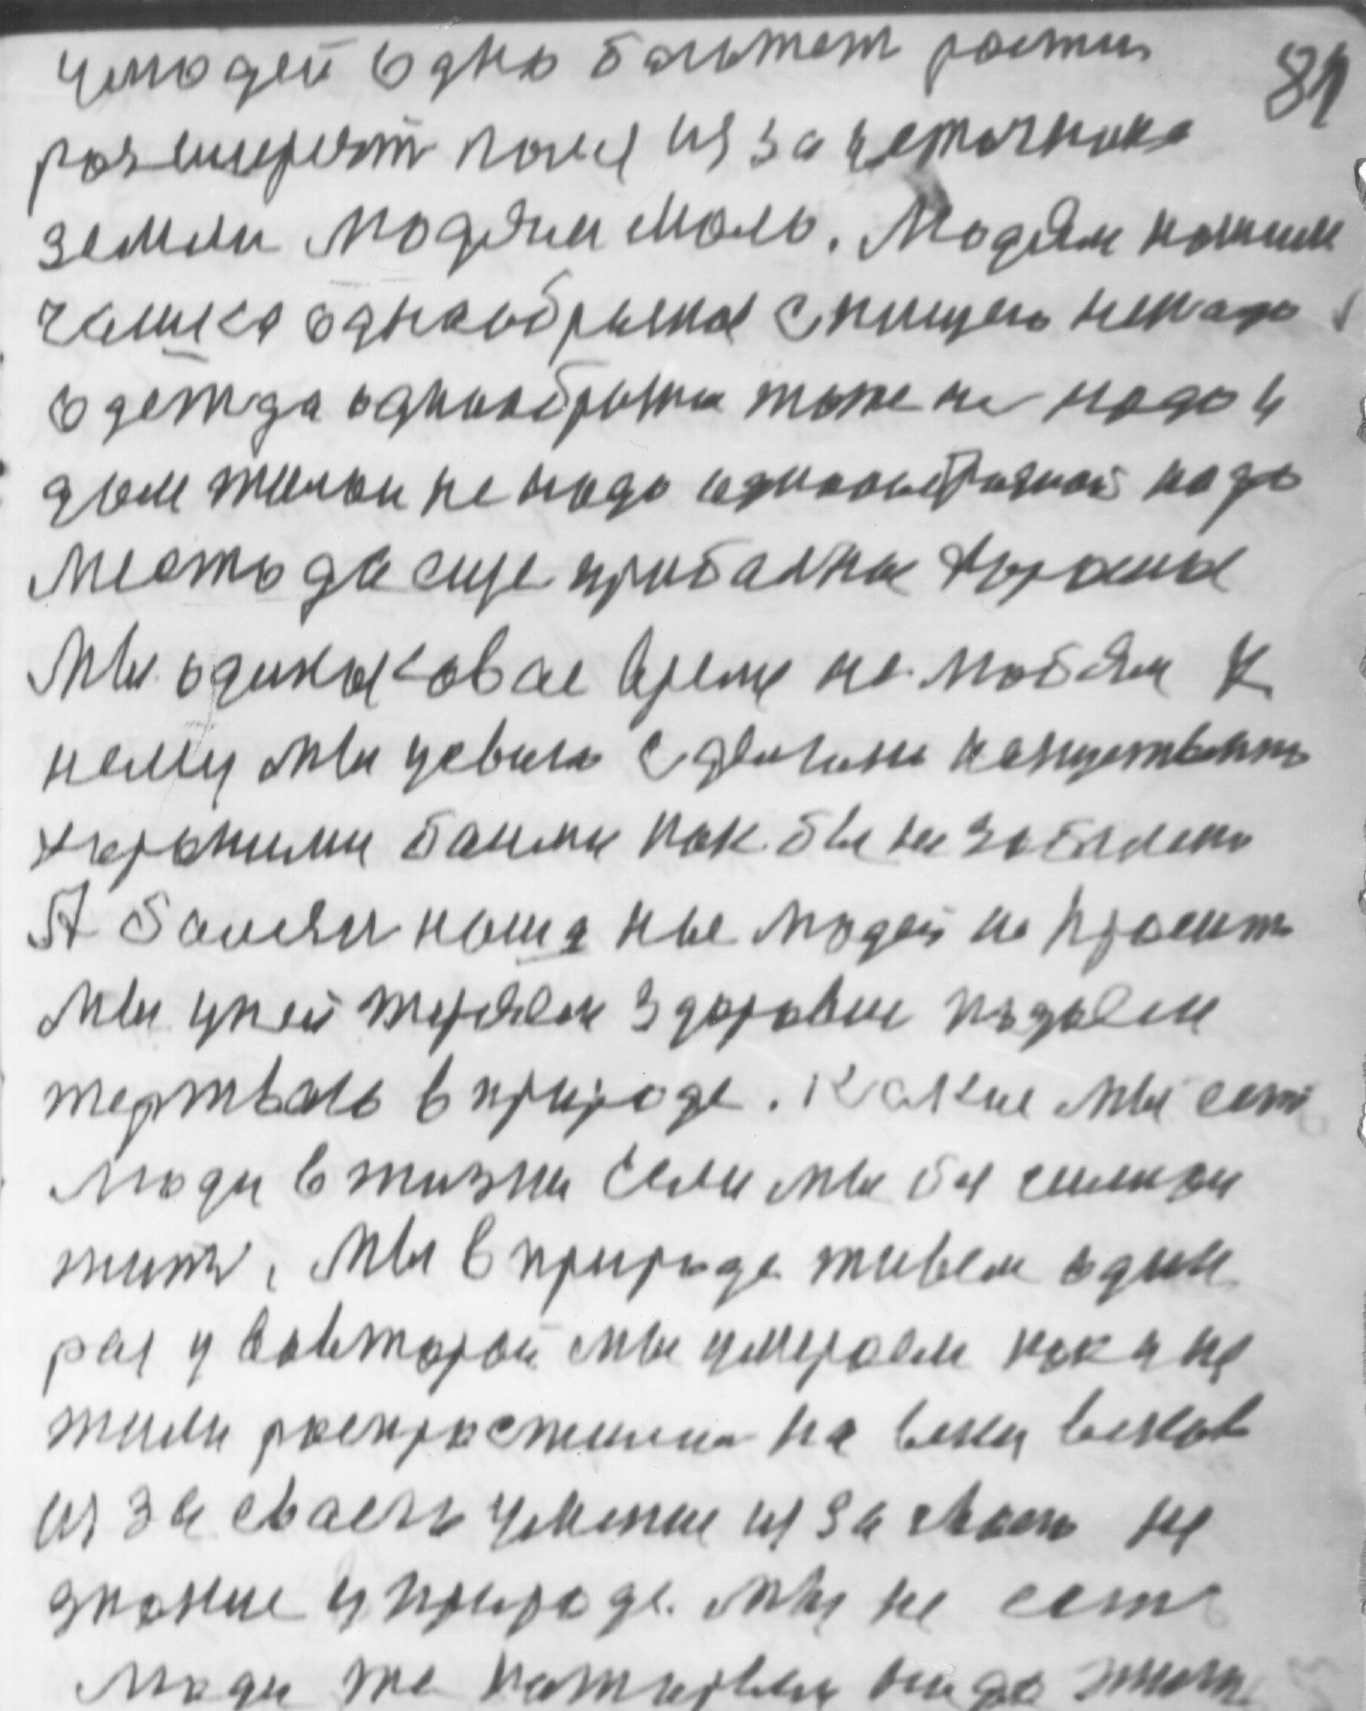 У людей одно бальжет рости 81
розширяят поля из за источнока
земли людям мало. Людям нашим
чашка однаобразная с пищею ненадо
одежда однообразна тоже не надо и
дом жилои не надо однообразной надо
место да еще прибальные хорошые
Мы одинаковае время не любям к
нему мы усвою сделали искуственно
хорошими баими как бы не заболено
А болезн наша нас людей не просит
мы у ней теряем здоровие подаем
жертваю в природе. Какие мы есть
люди в жизни если мы бы сумели
жить, мы в природе живем один
раз у вовторой мы умераем пока не
жили роспростились на веки веков
из за своего умение из за своего не
знание у природе. мы не есть
люди те каторые надо жить